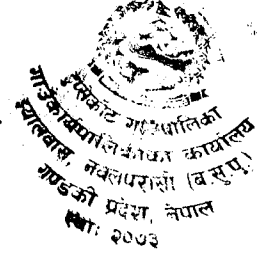 हुप्सेकोट गाउँपालिका
गाउँकार्यपालिकाको कार्यालय
नवलपरासी (ब.सु.पू.)
गण्डकी प्रदेश, नेपाल
२०७३